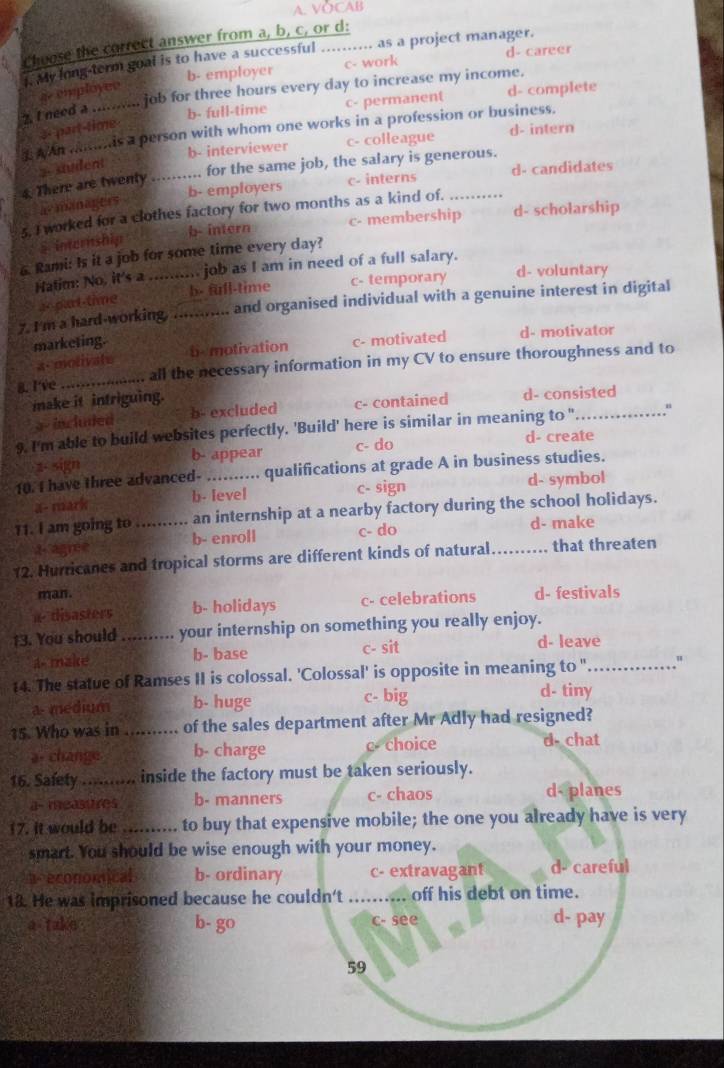 A. VOCAB
Choose the correct answer from a, b, c, or d:
1. My long-term goal is to have a successful .......... as a project manager.
a- employee b- employer c- work d- career
2. I need a .......... job for three hours every day to increase my income.
a- part-time b- full-time c- permanent d- complete
3. A/An .........is a person with whom one works in a profession or business.
a- student b- interviewer c- colleague d- intern
4. There are twenty .......... for the same job, the salary is generous.
a- managers b- employers c- interns d- candidates
5. I worked for a clothes factory for two months as a kind of. ..........
a- internship b- intern c- membership d- scholarship
6. Rami: Is it a job for some time every day?
Hatim: No, it's a .......... job as I am in need of a full salary.
a- part-time b- full-time c- temporary d- voluntary
7. I'm a hard-working, ........... and organised individual with a genuine interest in digital
marketing.
a- motivate b- motivation c- motivated d- motivator
8. I've ................. all the necessary information in my CV to ensure thoroughness and to
make it intriguing.
a- included b- excluded c- contained d- consisted
9. I'm able to build websites perfectly. 'Build' here is similar in meaning to "................."
a- sign b- appear c- do d- create
10. I have three advanced- .......... qualifications at grade A in business studies.
a- mark b- level c- sign d- symbol
11. I am going to .......... an internship at a nearby factory during the school holidays.
a- agree b- enroll c- do d- make
12. Hurricanes and tropical storms are different kinds of natural........... that threaten
man.
a- disasters b- holidays c- celebrations d- festivals
13. You should .......... your internship on something you really enjoy.
a- make b- base c- sit d- leave
14. The statue of Ramses II is colossal. 'Colossal' is opposite in meaning to "................."
a- medium b- huge c- big d- tiny
15. Who was in .......... of the sales department after Mr Adly had resigned?
a- change b- charge c- choice d- chat
16. Safety .......... inside the factory must be taken seriously.
a- measures b- manners c- chaos d- planes
17. It would be .......... to buy that expensive mobile; the one you already have is very
smart. You should be wise enough with your money.
a- economical b- ordinary c- extravagant d- careful
18. He was imprisoned because he couldn't ........... off his debt on time.
a- take b- go c- see d- pay
M.A.H
59